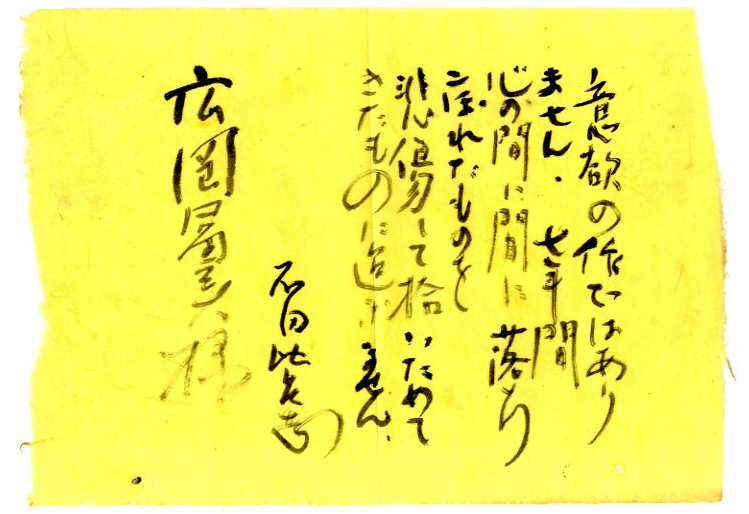 意欲の作ではあり
ません。七年間
心の間に間に落ち
こぼれたものを
悲傷して拾いためて
きたものに過ぎません。
石田比呂志
広岡冨美様